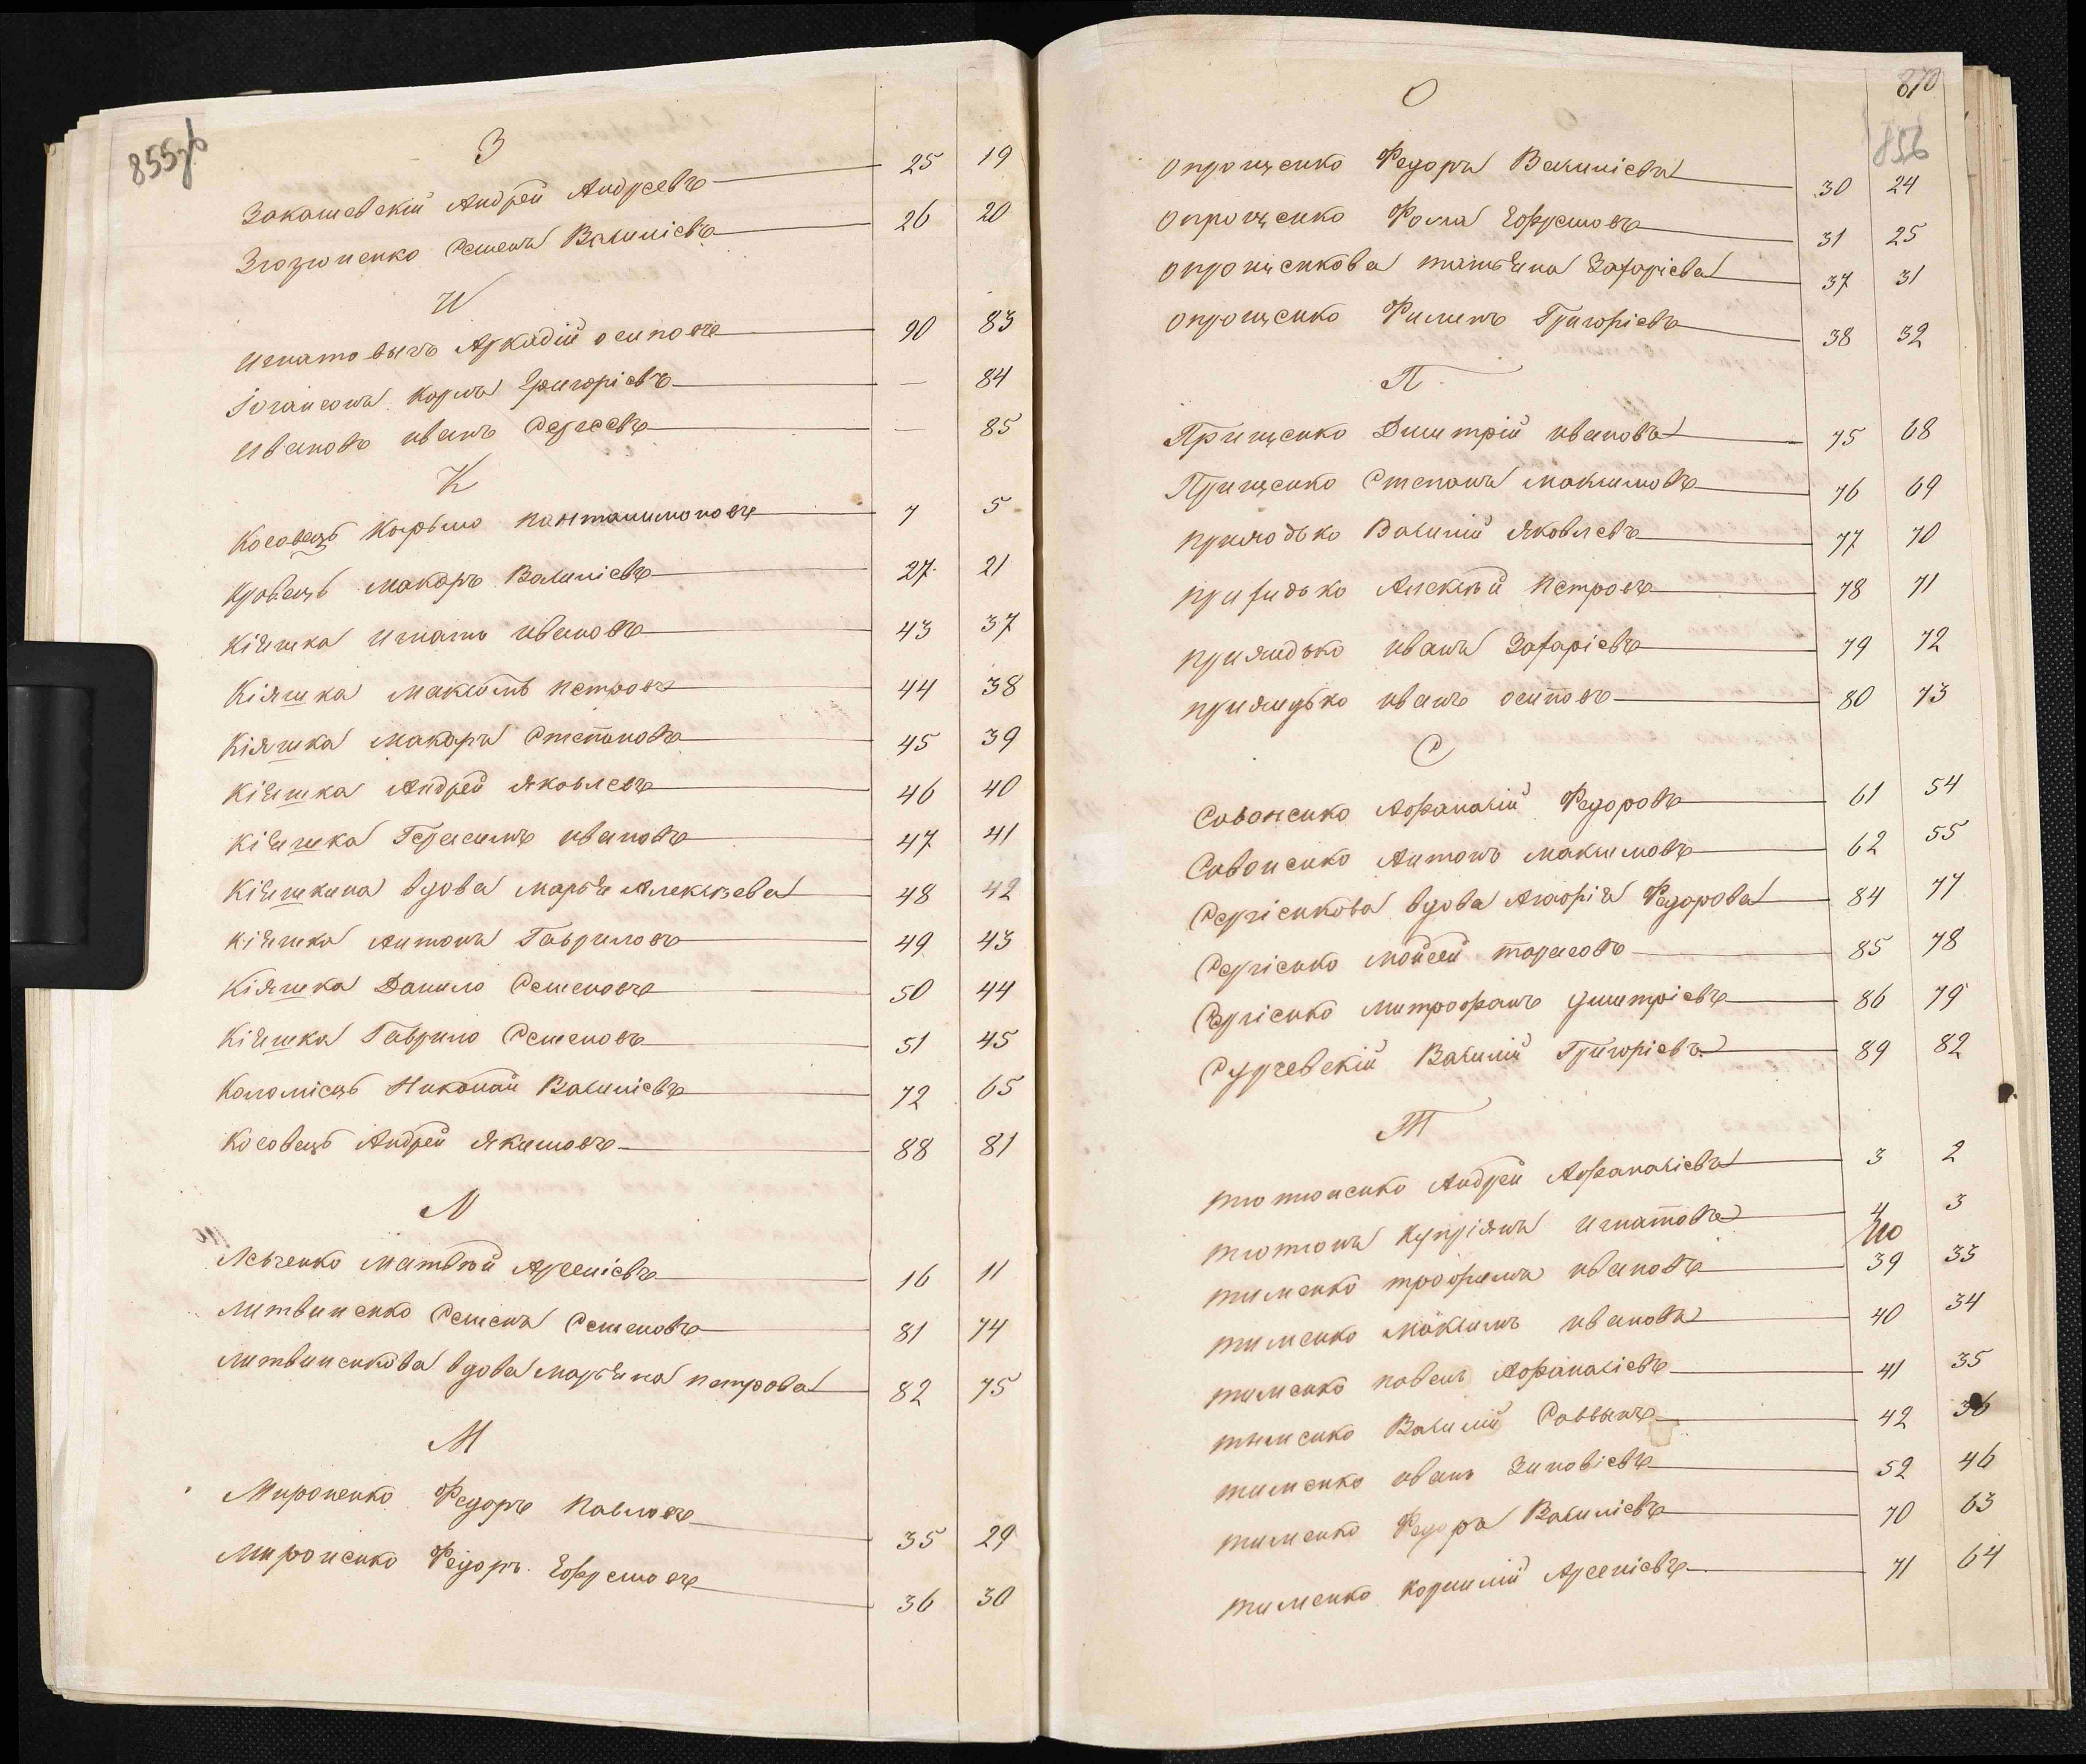 855зв
З
Закашевскій Андрей Андреевъ 25 19
Зюзюненко Семенъ Василіевъ 26 20
И
Игнатовичъ Аркадій осиповъ 90 83
Іогансонъ Карлъ Григоріевъ — 84
Ивановъ иванъ Сергеевъ — 85
К
Косовецъ Кирьло панталимоновъ 7 5
Кравецъ Макаръ Василіевъ 27 21
Кіяшка Игнатъ ивановъ 43 37
Кіяшка Максимъ петровъ 44 38
Кіяшка Макаръ Степановъ 45 39
Кіяшка Андрей яковлевъ 46 40
Кіяшка Герасимъ ивановъ 47 41
Кіяшкина вдова марья Алексѣева 48 42
Кіяшка Антонъ Гавриловъ 49 43
Кіяшка Данило Семеновъ 50 44
Кіяшка Гаврило Семеновъ 51 45
Коломіецъ Николай Василіевъ 72 65
Косовецъ Андрей Якимовъ 88 81
Л
Левченко Матвѣй Арсеніевъ 16 11
Литвиненко Семенъ Семеновъ 81 74
литвиненкова вдова марьяна петрова 82 75
М
Мироненко Федоръ Павловъ 35 29
Мироненко Федоръ Ефремовъ 36 30
870
856
О
Опрощенко Федоръ Василіевъ 30 24
Опрощенко Фома Ефремовъ 31 25
опрощенкова татьяна Захаріева 37 31
опрощенко Филипъ Григоріевъ 38 32
П
Прищенко Дмитрій ивановъ 75 68
Прищенко Степанъ максимовъ 76 69
Василій Яковлевъ 77 70
Алексѣй петровъ 78 71
иванъ Захаріевъ 79 72
иванъ осиповъ 80 73
С
Савоненко Афанасій Федоровъ 61 54
Савоненко Антонъ максимовъ 62 55
Сергіенкова вдова Агафія Федорова 84 77
Сергіенко Мойсей тарасовъ 85 78
Сергіенко митрофанъ дмитріевъ 86 79
Василій Григоріевъ 89 82
Т
тютюненко Андрей Афанасіевъ 3 2
тютюнъ Купріянъ игнатовъ 4 3
тименко трофимъ ивановъ 39 33
тименко максимъ ивановъ 40 34
тименко павелъ Афанасіевъ 41 35
тименко Василій Саввынъ 42 36
тименко иванъ Зиновіевъ 52 46
тименко Федоръ Василіевъ 70 63
тименко корнилій Арсеніевъ 71 64